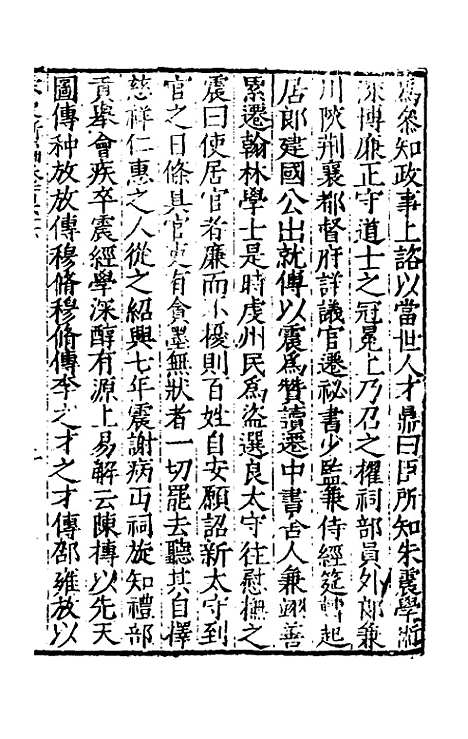 為參知政事上諮以當世人才鼎曰臣所知朱震學術
深博廉正守道士之冠冕上乃召之擢祠部員外郎兼
川陝荆襄都督府詳議官遷祕書少監兼侍經筵轉起
居郎建國公出就傅以震爲贊讀遷中書舍人兼翊善
累遷翰林學士是時虔州民爲盜選良太守往慰撫之
震曰使居官者廉而不擾則百姓自安願詔新太守到
官之日條具官吏有貪墨無狀者一切罷去聽其自擇
慈祥仁惠之人從之紹興七年震謝病丐祠旋知禮部
貢舉會疾卒震經學深醇有源上易解云陳摶以先天
圖傳种放放傳穆脩穆脩傳李之才之才傳邵雍放以